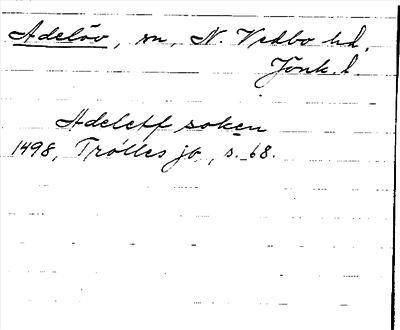 Adelöv, sn, N. Vedbo hd,
Jönk. l.
Adeleff soken
1498, Trolles jb, s. 68.